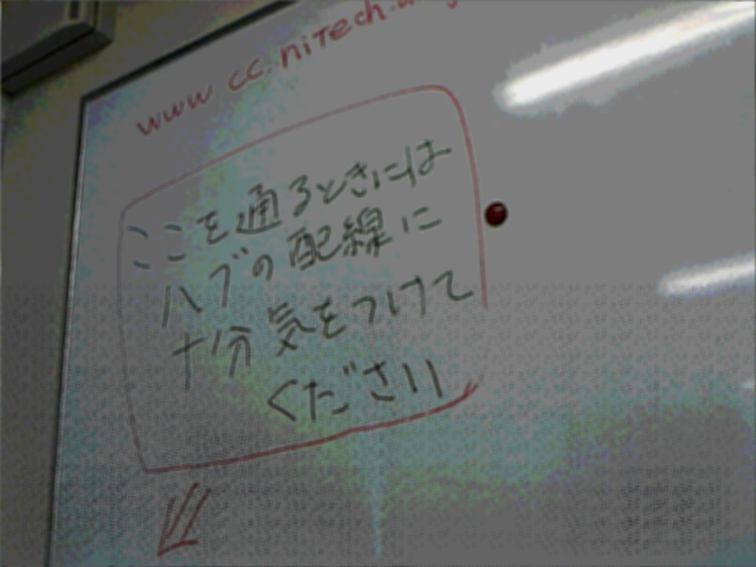 www cc.nitech.
ここを通るときには
ハブの配線に
十分気をつけて
ください